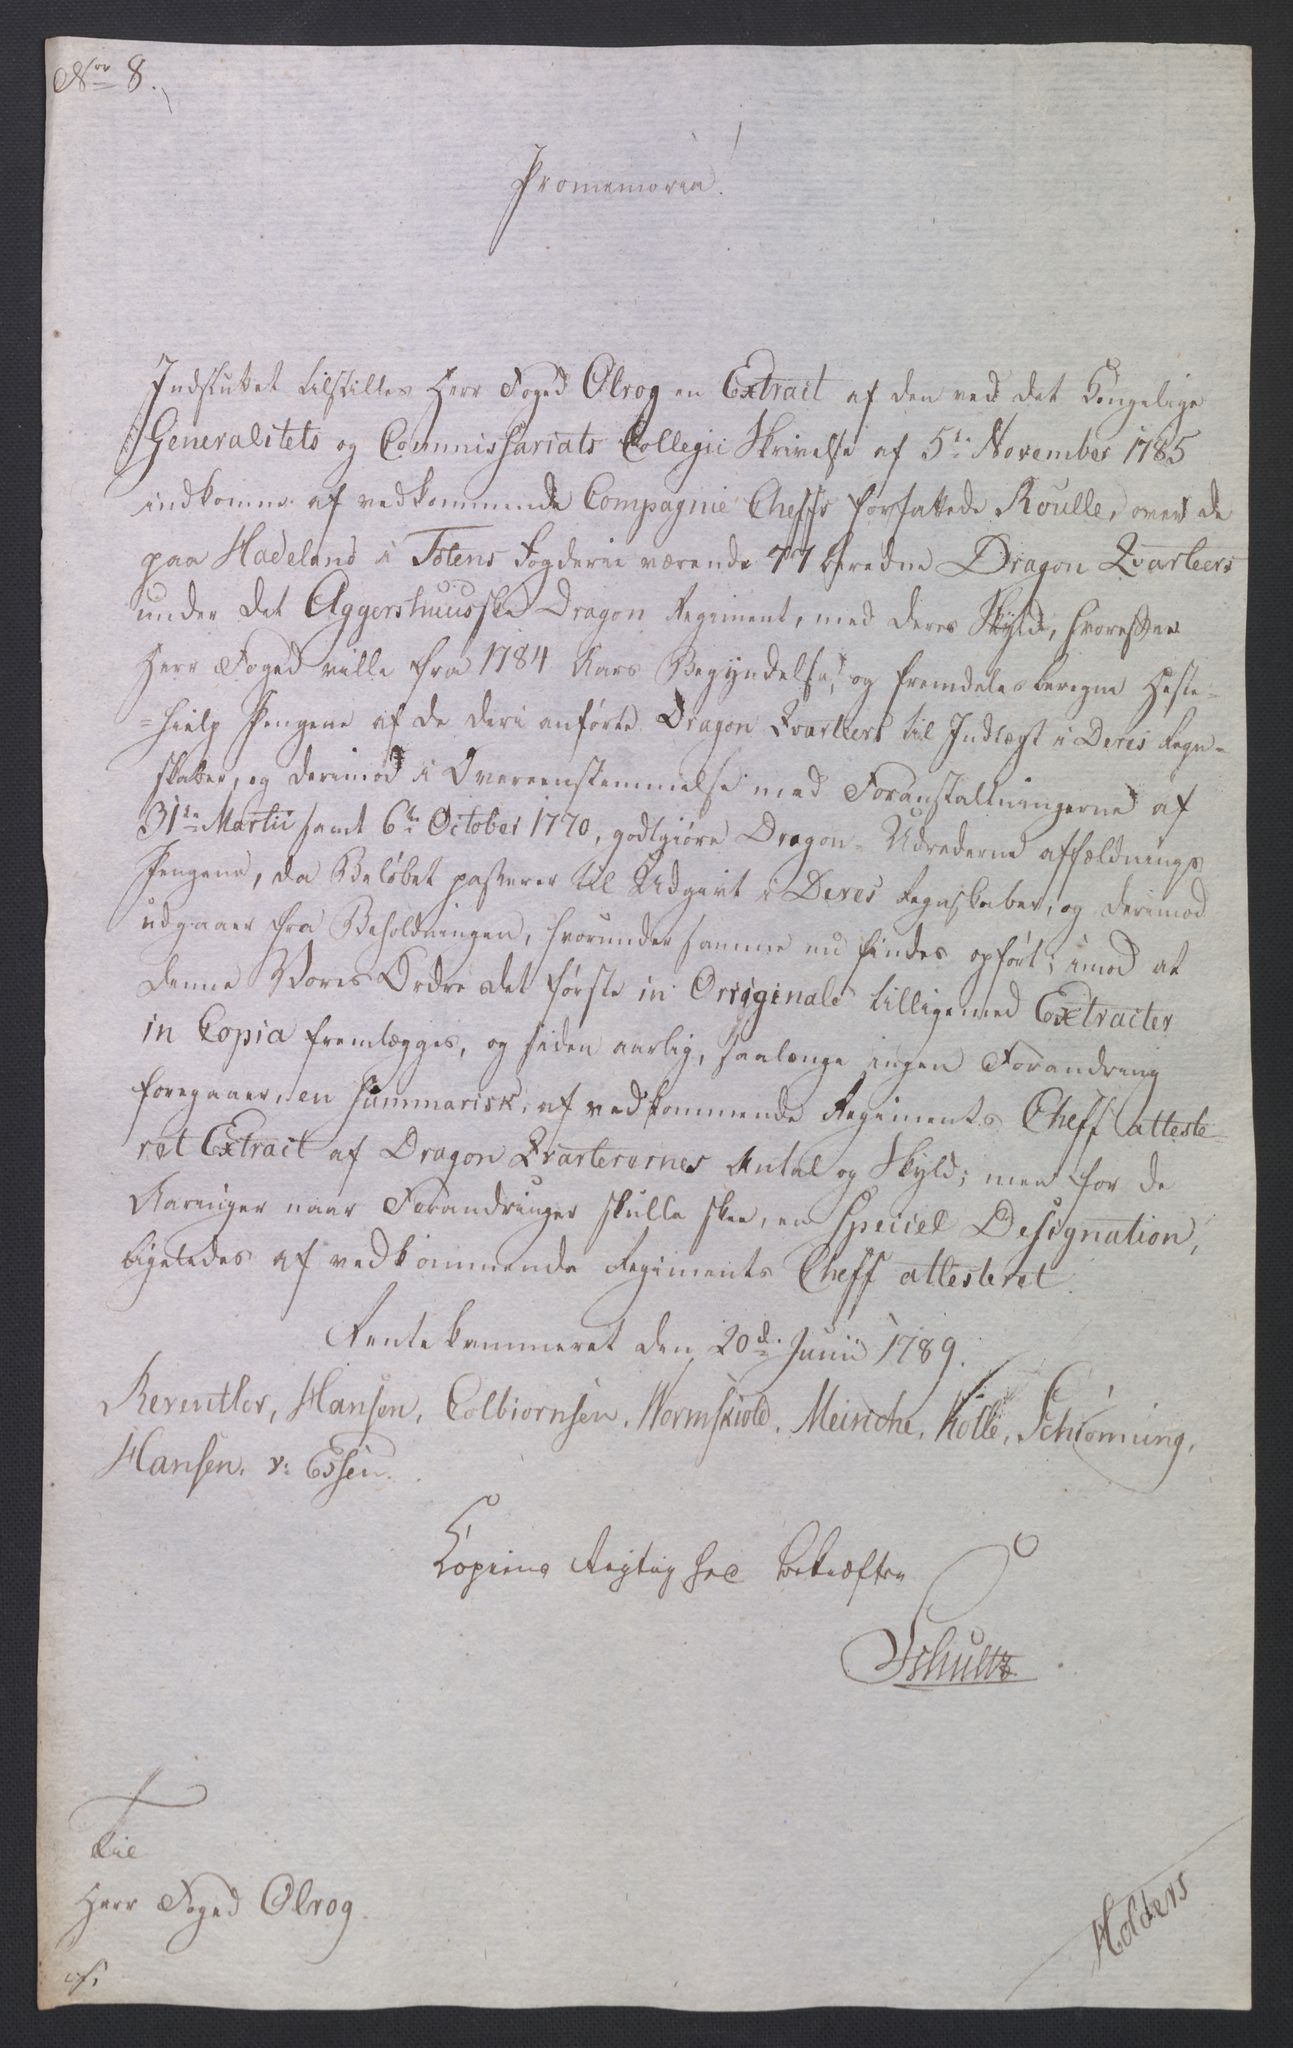 Nor 8.
Promemoria!
Indsluttet tilstilles Herr Foged Olrog en Extract af den ved det Kongelige
Generalitets og Commissariats Collegii Skrivelse af 5te November 1785
indkomne af vedkommende Compagnie Cheffs forfattede Roulle, over de
paa Hadeland i Totens Fogderie værende 77 beredne Dragon Qvarteers
under det Aggershuusske Dragon Regiment, med deres Skyld, hvorefter
Herr Foged ville fra 1784 Aars Begyndelse, og fremdeles beregne Heste-
-hielp Pengene af de deri anførte Dragon Qvarteers til Indtægt i Deres Regn-
skaber, og derimod i Overeenstemmelse med Foranstaltningerne af
31te Martii samt 6te October 1770, godtgiøre Dragon-Udrederne affældnings
Pengene, da Beløbet passerer til Udgivt i Deres Regnskaber, og derimod
udgaaer fra Beholdningen, hvorunder samme nu findes opført; imod at
denne Vores Ordre det første in Originale tilligemed Extracter
in Copia fremlægges, og siden aarlig, saalænge ingen Forandring
foregaaer, en summarisk, af vedkommende Regiments Cheff atteste-
ret Extract af Dragon Qvarterernes Antal og Skyld; men for de
Aaringer naar Forandringer skulle skee, en speciel Designation,
ligeledes af vedkommende Regiments Cheff attesteret.
Rentekammeret den 20de Junii 1789.
Reventlov, Hansen, Colbiornsen, Wormskiold, Meinche, Kolle, Schiønning,
Hansen, v: Essen.
Copiens Rigtighed bekræfter
Schultz
Til
Herr Foged Olrog.
Holders